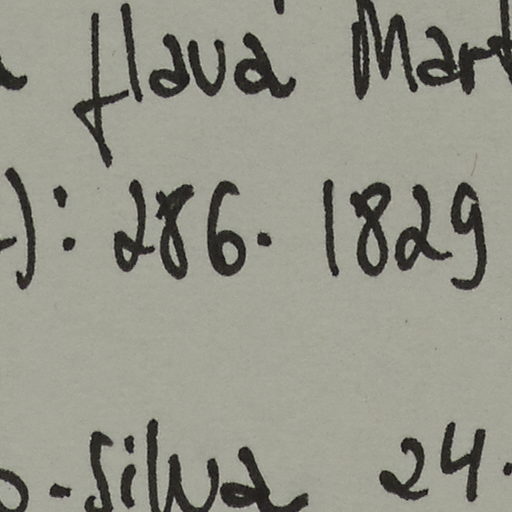 flava Mart
): 286. 1829
o-Silva 24.